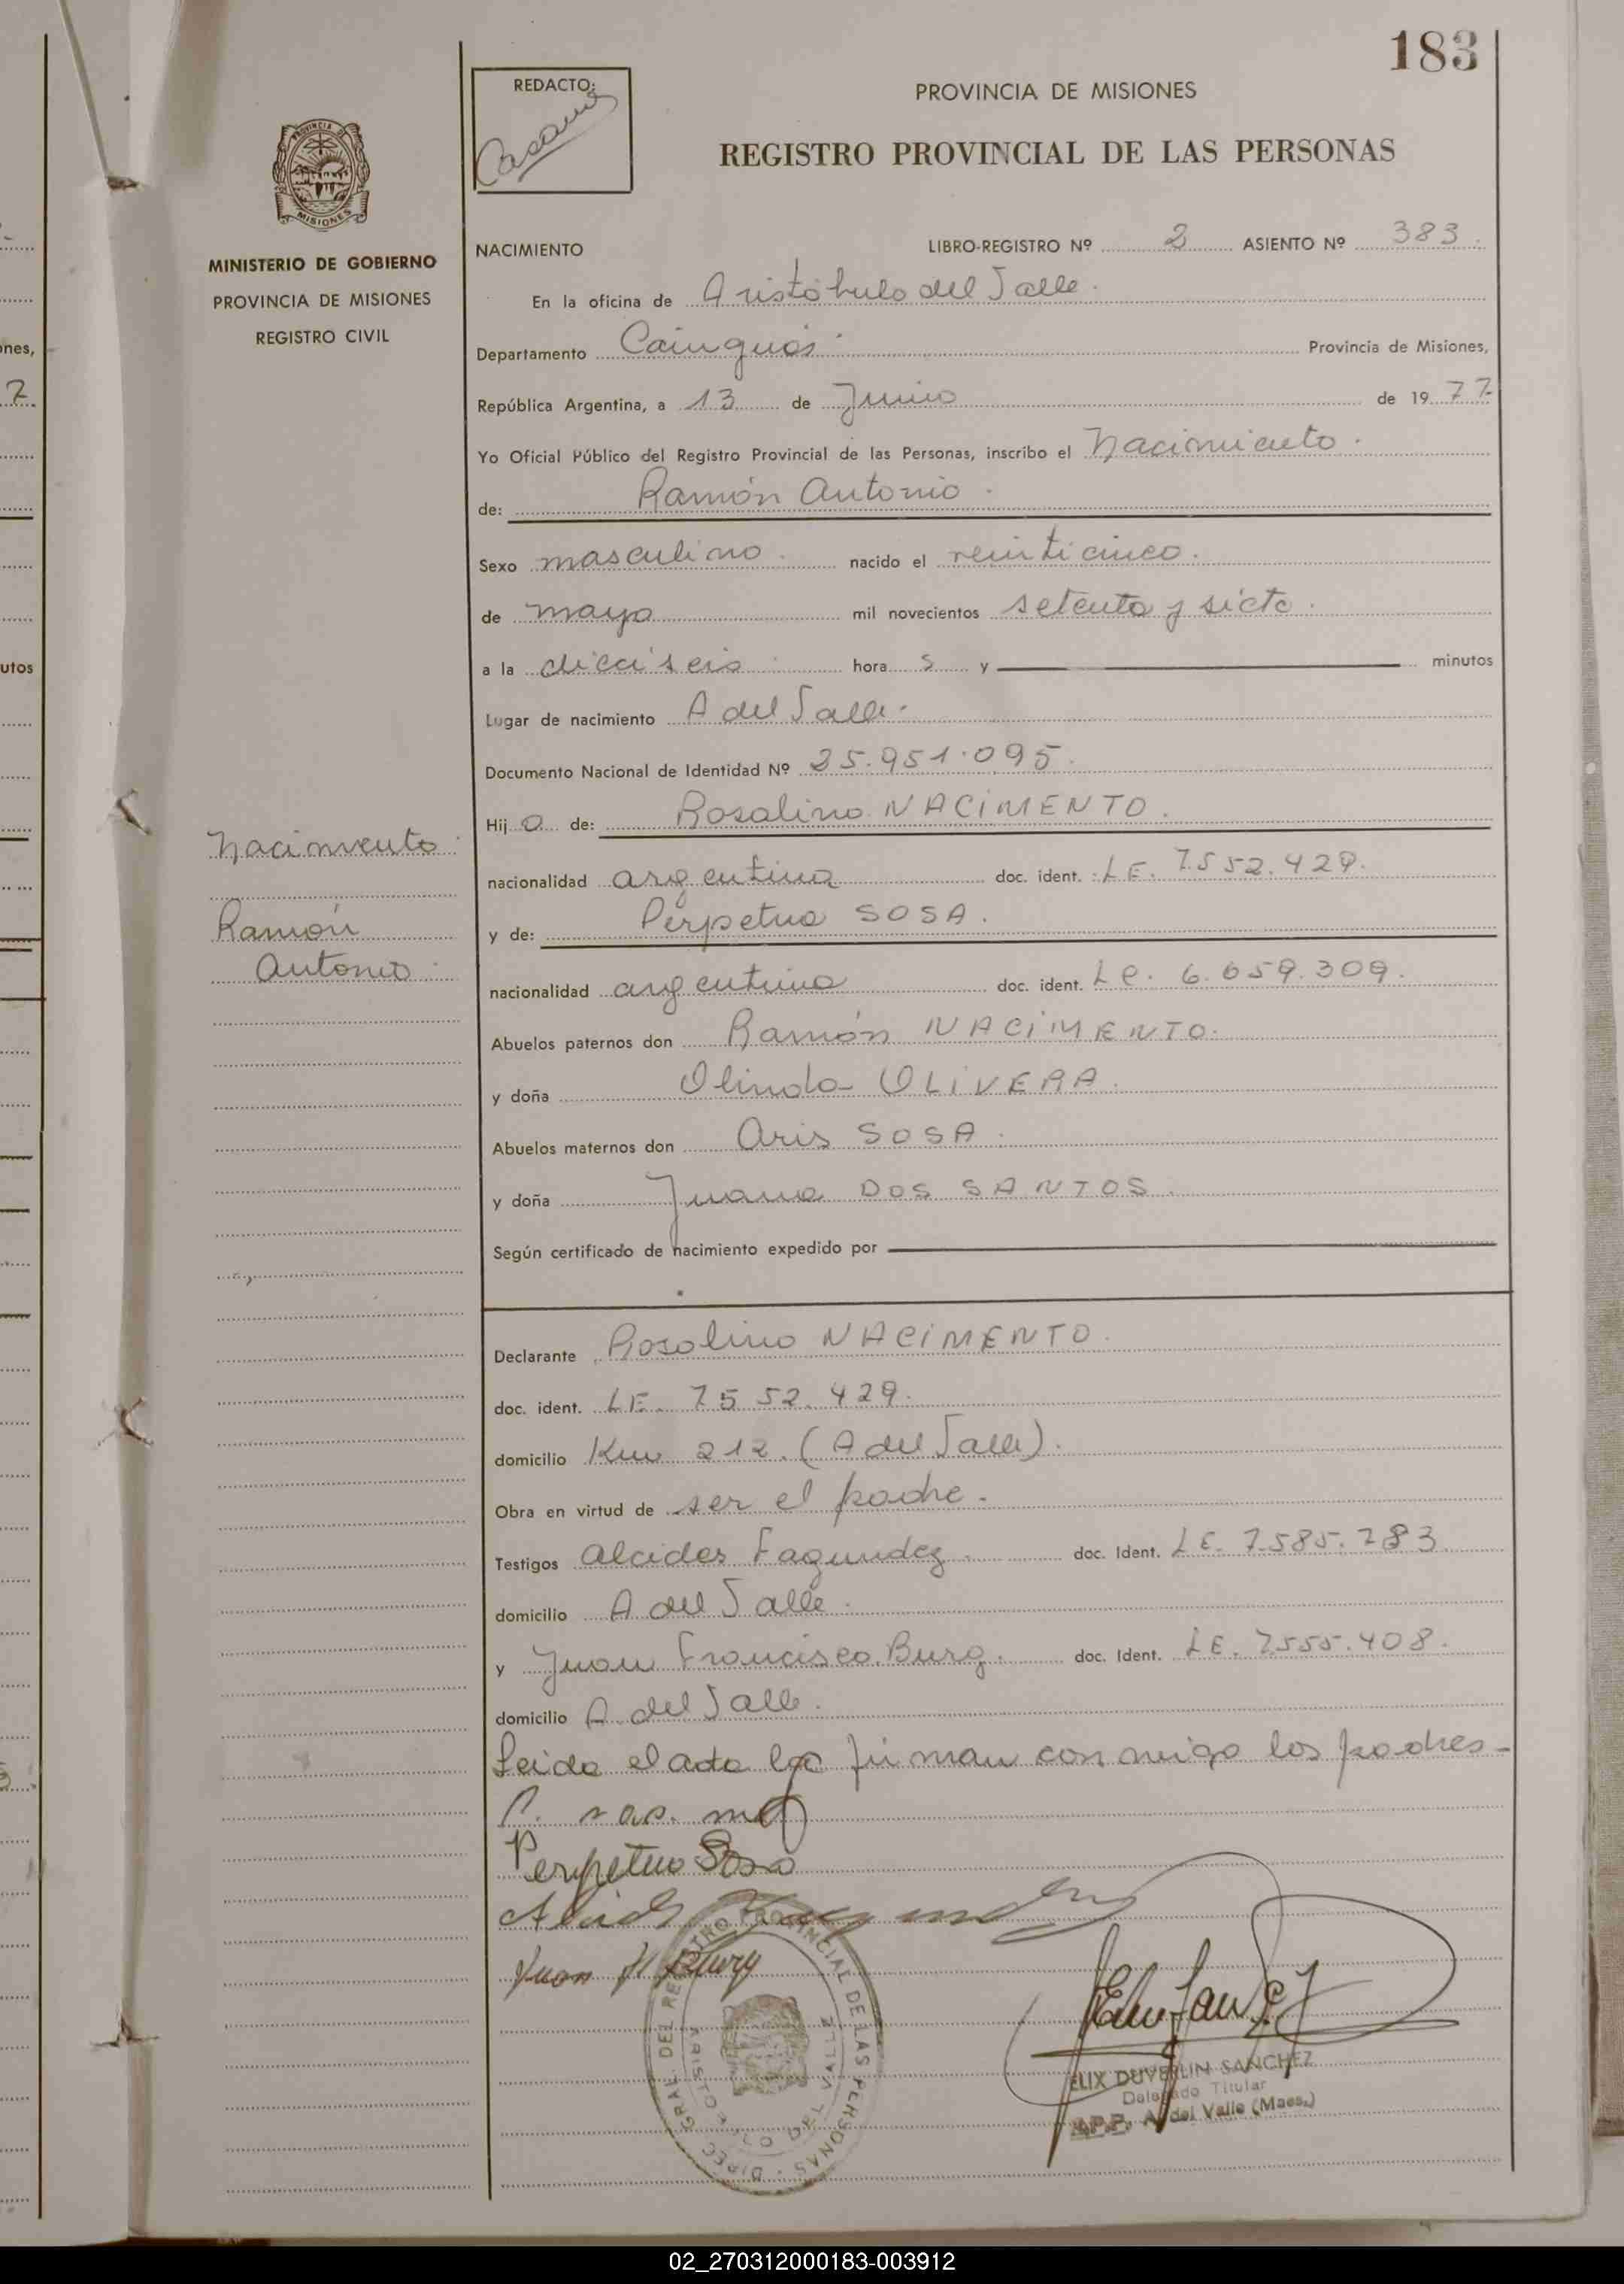 183
REDACTO:
PROVINCIA DE MISIONES
REGISTRO PROVINCIAL DE LAS PERSONAS
PROVINCIA DE
MISIONES
MINISTERIO DE GOBIERNO
PROVINCIA DE MISIONES
REGISTRO CIVIL
NACIMIENTO LIBRO-REGISTRO Nº 2 ASIENTO Nº 383.
En la oficina de Aristóbulo del Valle.
Departamento Cainguás. Provincia de Misiones,
República Argentina, a 13 de Junio de 1977
Yo Oficial Público del Registro Provincial de las Personas, inscribo el Nacimiento.
de: Ramón Antonio.
Sexo masculino. nacido el veinticinco.
de mayo mil novecientos setenta y siete.
a la dieciseis hora s y minutos
Lugar de nacimiento A del Valle.
Documento Nacional de Identidad Nº 25.951.095.
Hij o de: Rosalino NACIMENTO.
nacionalidad argentina doc. ident. LE. 7.552.429.
y de: Perpetua SOSA.
nacionalidad argentina doc. ident. LC. 6.659.309.
Abuelos paternos don Ramón NACIMENTO.
y doña Olinda OLIVERA.
Abuelos maternos don Aris SOSA.
y doña Juana DOS SANTOS.
Según certificado de nacimiento expedido por
Nacimento.
Ramón
Antonio.
Declarante Rosalino NACIMENTO.
doc. ident. LE. 7552.429.
domicilio Km 212. (A del Valle).
Obra en virtud de ser el padre.
Testigos Alcides Fagundez. doc. Ident. LE. 7.585.283
domicilio A del Valle.
y Juan Francisco Burg. doc. Ident. LE. 7555.408.
domicilio A del Valle.
Leida el acta la firman conmigo los padres-
Perpetua Sosa
Juan F Burg
DIREC. GRAL. DEL REGISTRO PROVINCIAL DE LAS PERSONAS
ELIX DUVERLIN SANCHEZ
Delegado Titular
R.P.P. A. del Valle (Mnes.)
ones,
7
utos
02_270312000183-003912